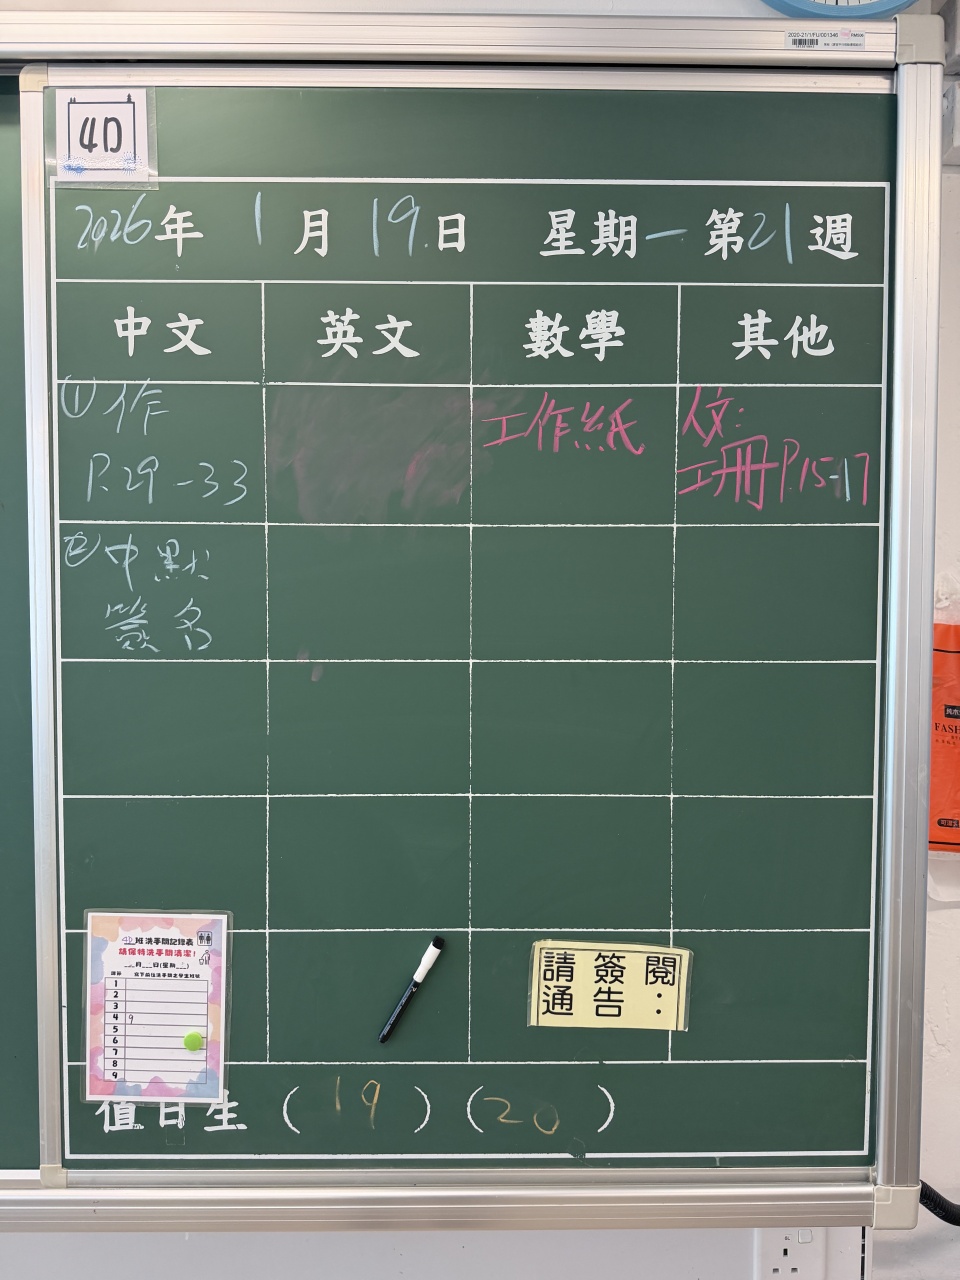 2020-21/1/FU/001346
4D
2026年 1月 19日 星期一 第21週
中文 英文 數學 其他
①作
P.29-33
工作紙
人文:
工冊P.15-17
②中默
簽名
FASH
4D班洗手間記錄表
請保持洗手間清潔!
月 日(星期 )
1
2
3
4 9
5
6
7
8
9
請簽閱
通告:
值日生 (19) (20)